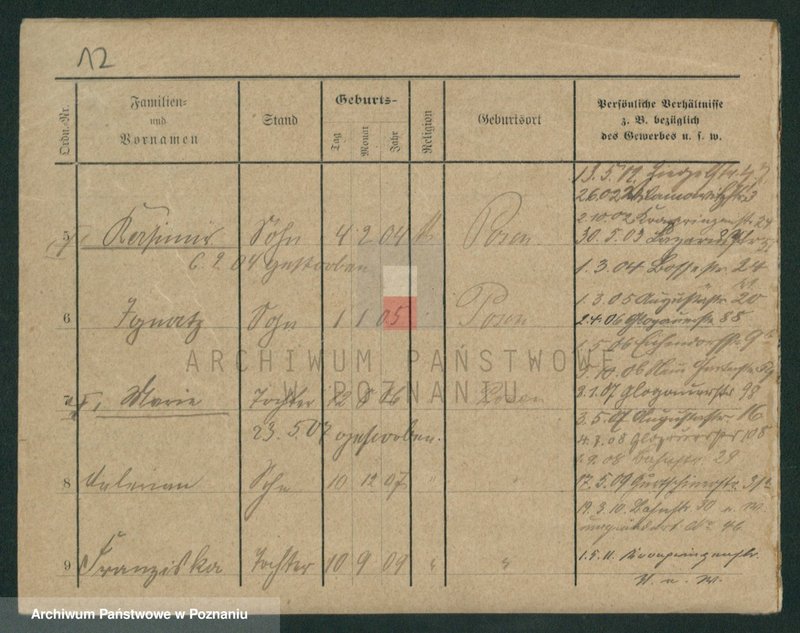 12
Ordn.-Nr.
Familien-
und
Vornamen
Stand
Geburts-
Tag
Monat
Jahr
Religion
Geburtsort
Persönliche Verhältnisse
z. B. bezüglich
des Gewerbes u. s. w.
5 Kasimir Sohn 4 2 04 k Posen
6. 2. 04 gestorben
6 Ignatz Sohn 1 1 05 Posen
7 Marie Tochter 12 8 06 Posen
23. 5. 07 gestorben.
8 Valerian Sohn 10 12 07 "
9 Franziska Tochter 10 9 09 " "
13. 5. 02
26 02
2 10 02 Kronprinzenstr 24
30. 5. 03
1. 3. 04 Bossestr. 24
1. 3. 05 Augustastr 20
2. 4. 06 Glogauerstr 88
1. 5. 06 Eichendorffstr. 9
06
3. 1. 07 Glogauerstr 98
3. 5. 07 Augustastr 16
4. 7. 08 Glogauerstr 108
1. 9. 08 Bahnstr. 29
17. 5. 09 Gurtschinerstr. 31
19. 3. 10. Bahnstr 30 u. w.
umgeändert No 46
1. 5. 11. Kronprinzenstr.
u. w.
ARCHIWUM PAŃSTWOWE
W POZNANIU
Archiwum Państwowe w Poznaniu